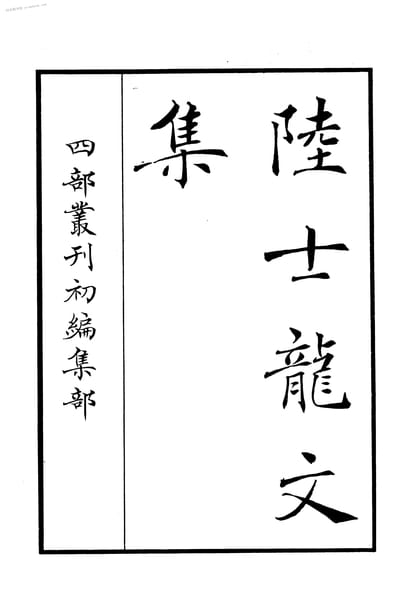 陸士龍文
集
四部叢刊初編集部